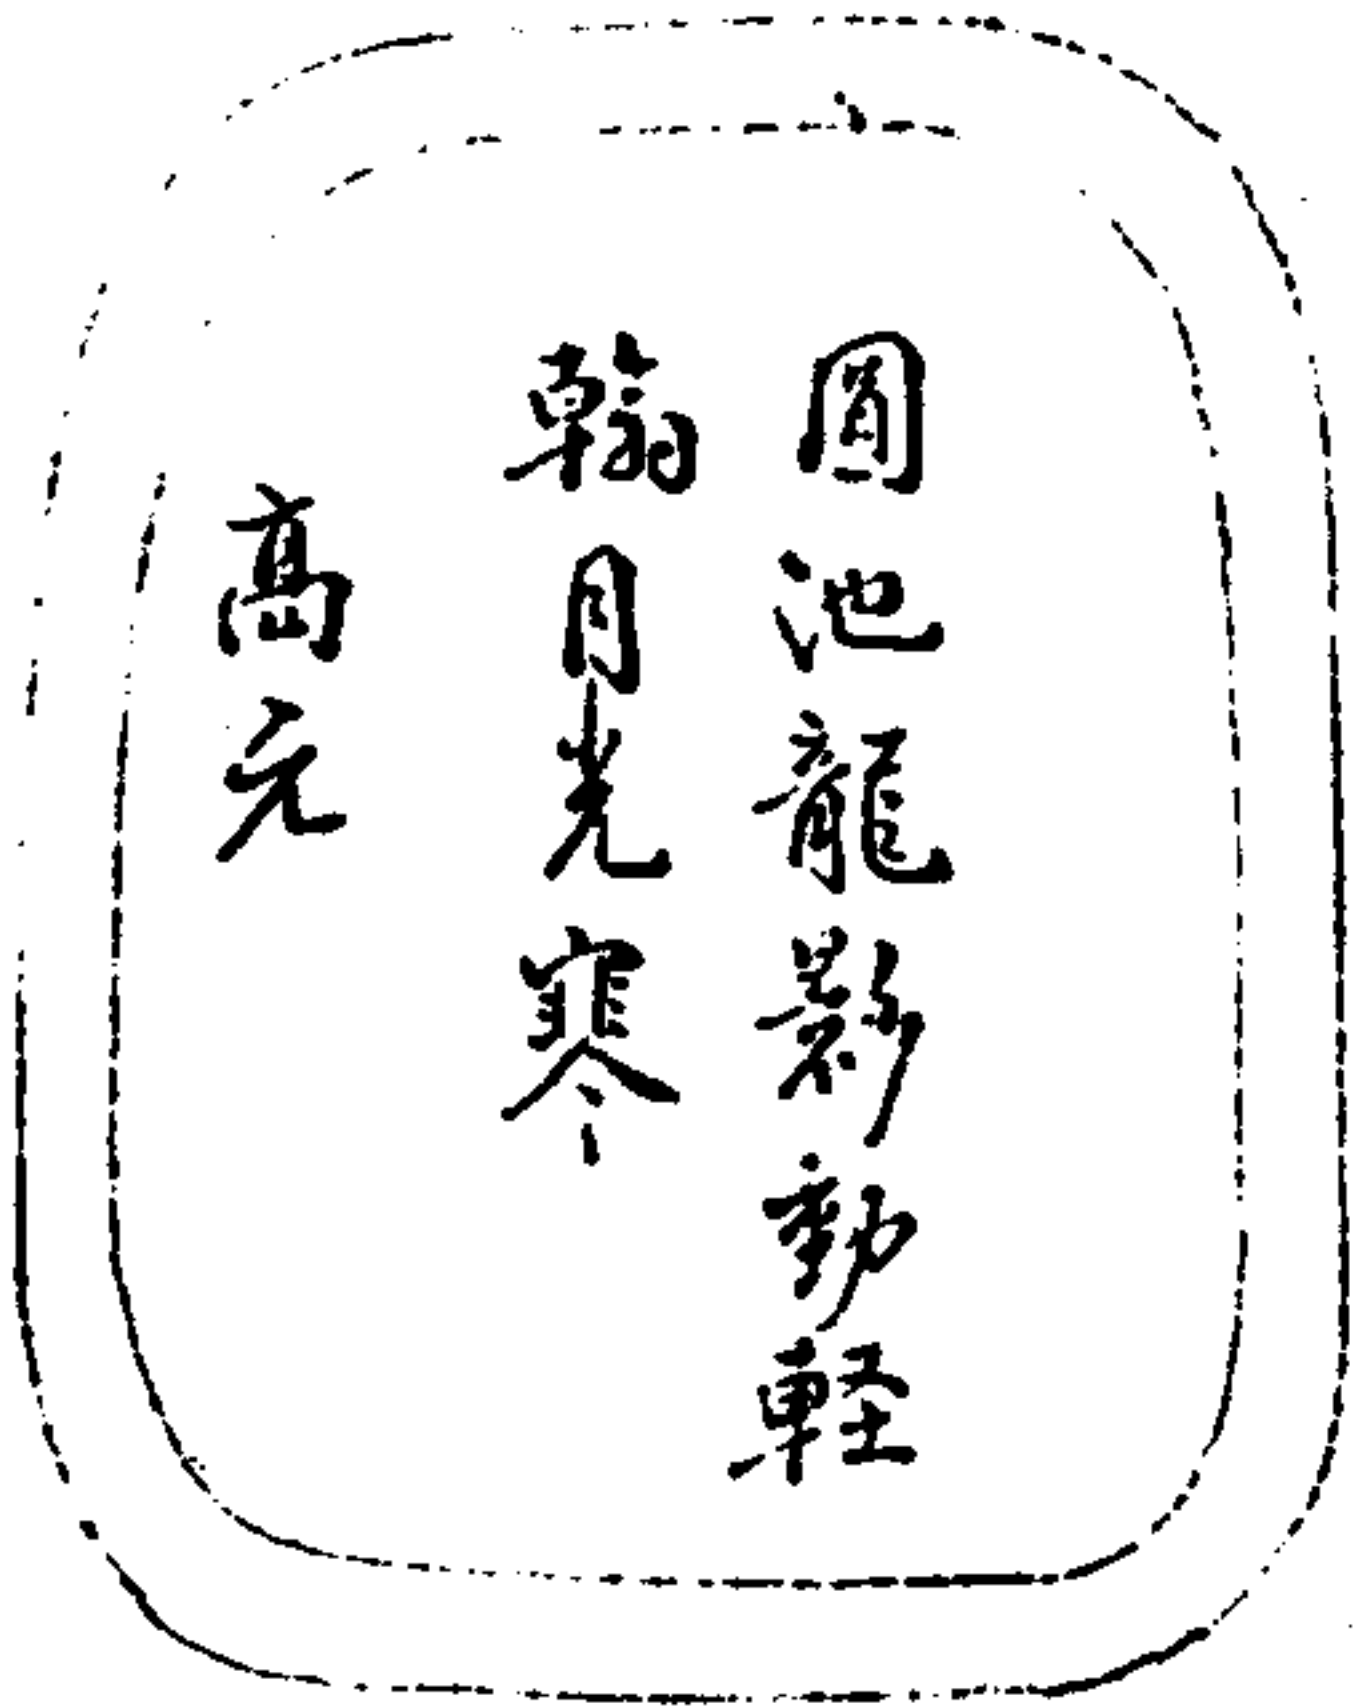 圓池龍影動軽
翰月光寒
高元